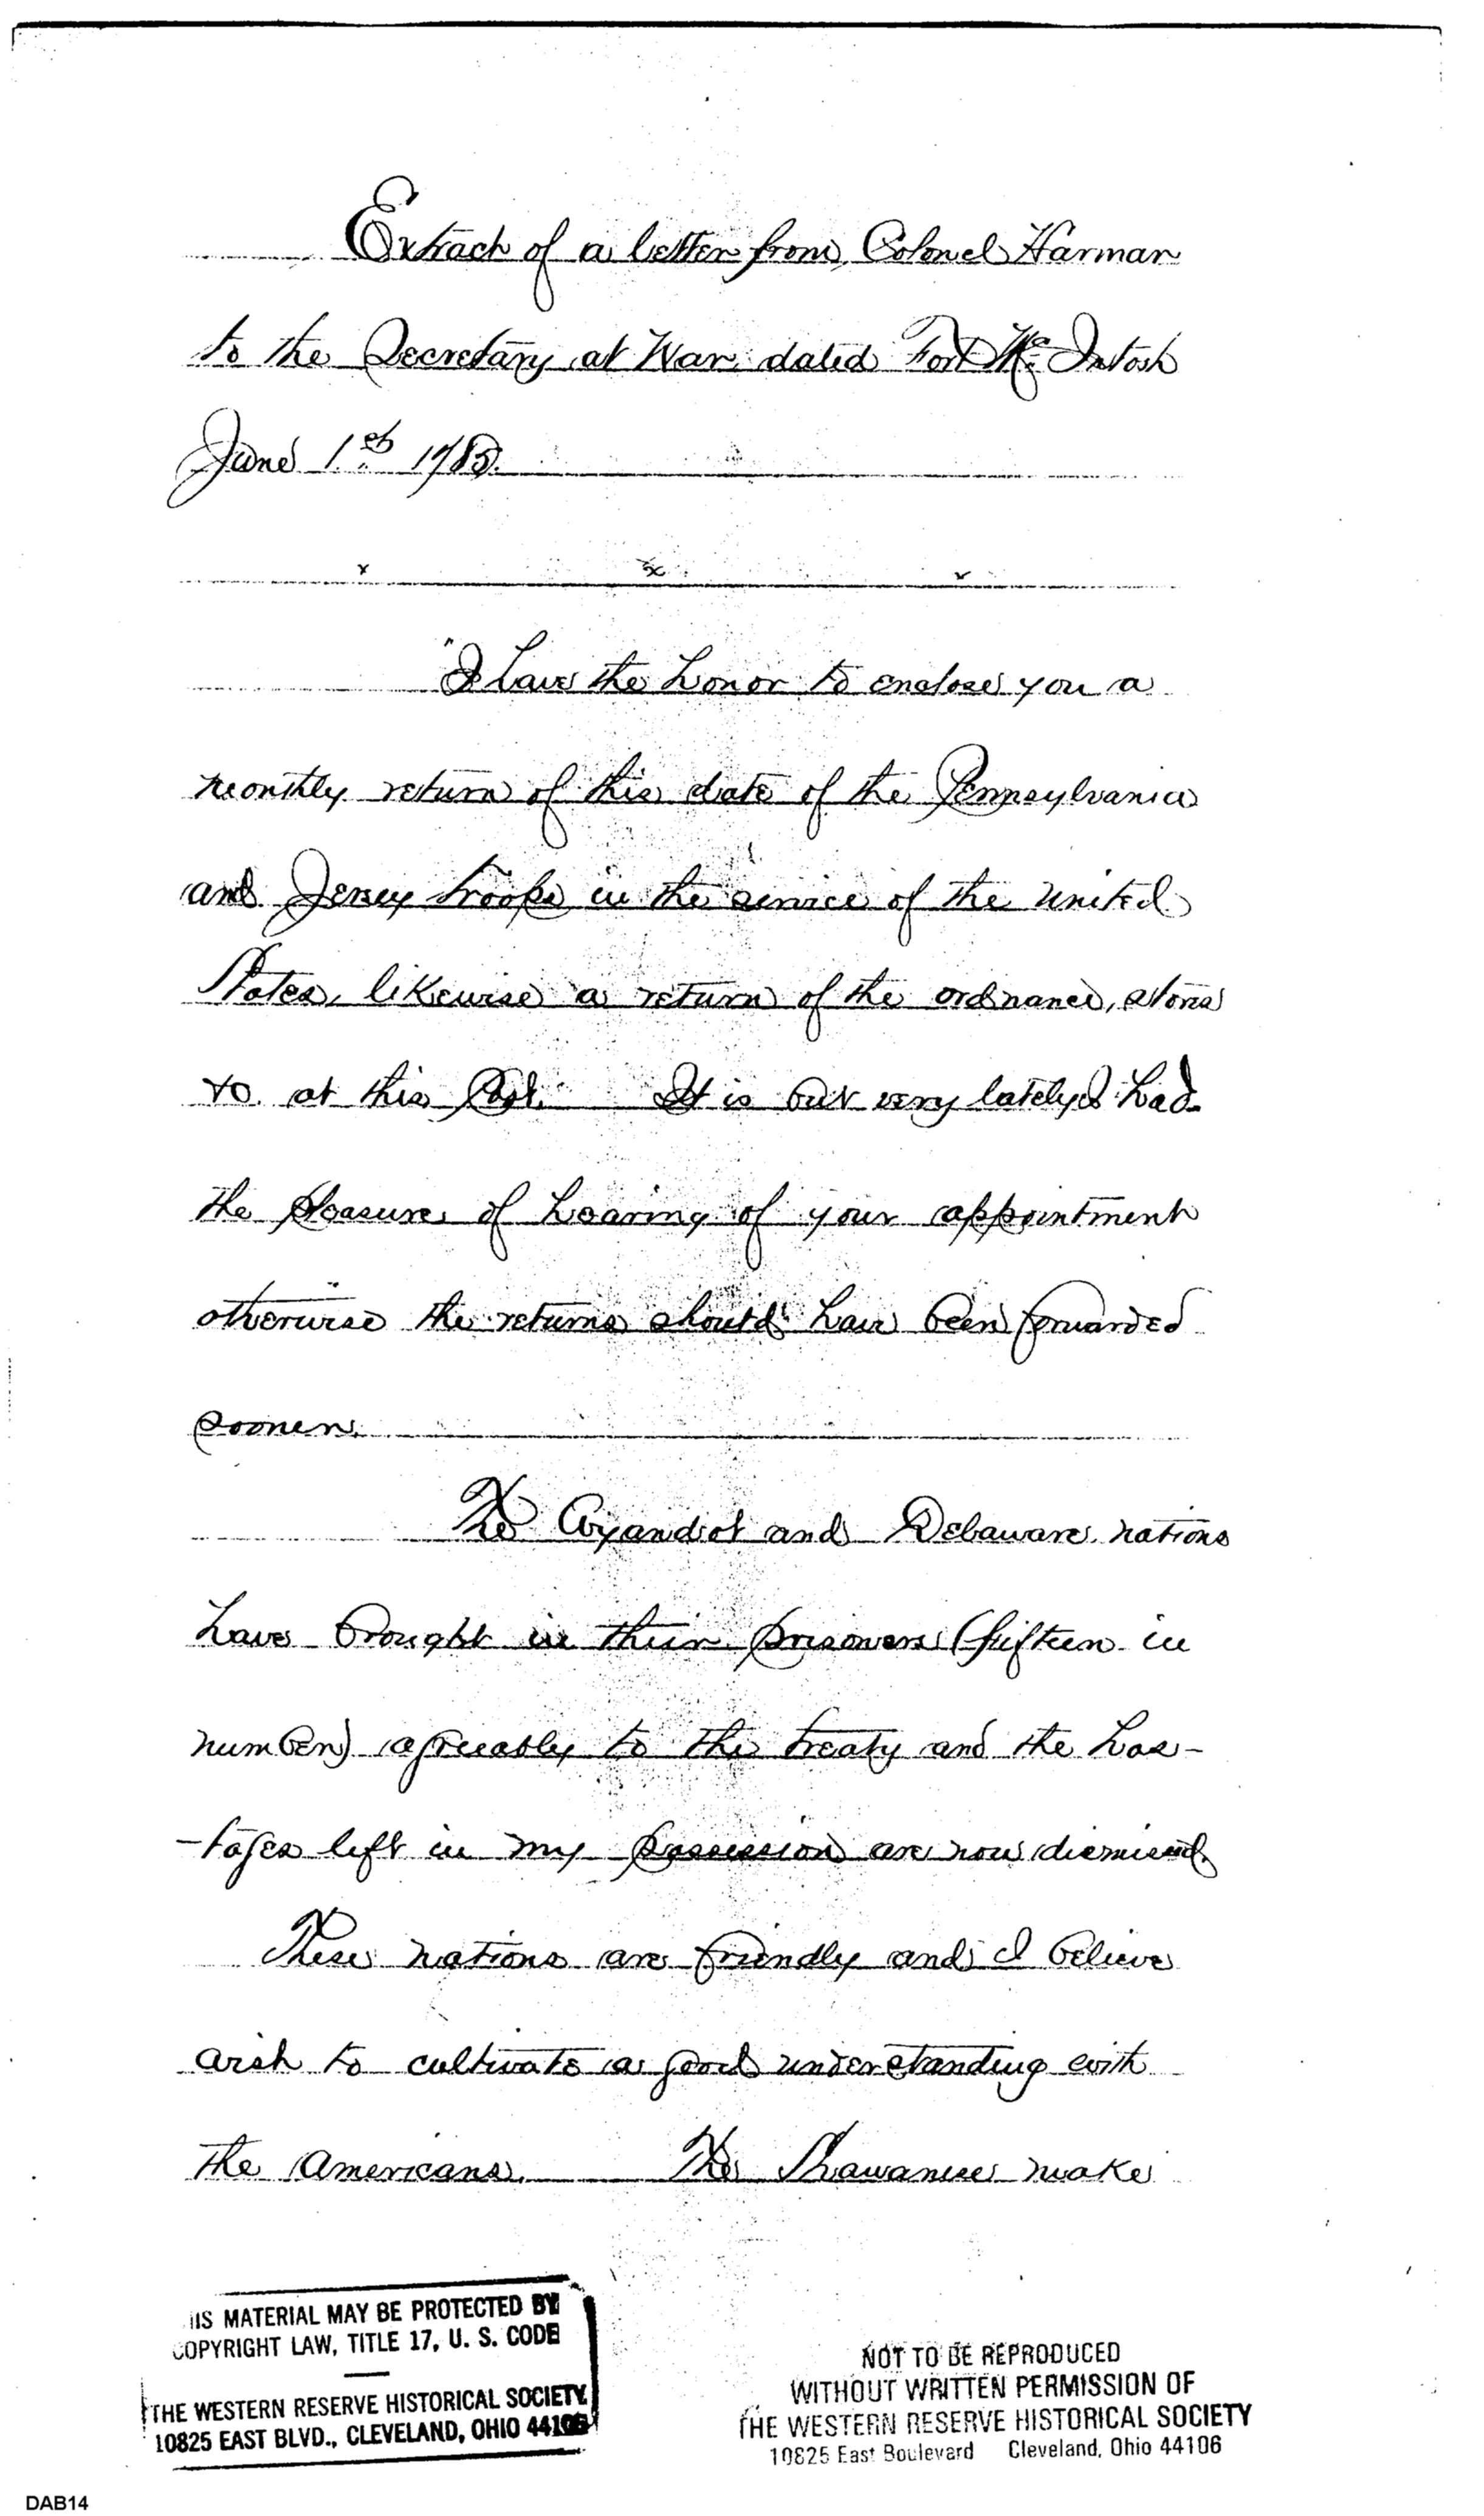 Extract of a letter from Colonel Harmar
to the Secretary at War, dated Fort McIntosh
June 1st 1785.
x x x
"I have the honor to enclose you a
monthly return of this date of the Pennsylvania
and Jersey troops in the service of the United
States, likewise a return of the ordnance, stores
&c. at this Post. It is but very lately I had
the pleasure of hearing of your appointment
otherwise the returns should have been forwarded
sooner.
The Wyandot and Delaware nations
have brought in their prisoners (fifteen in
number) agreeably to the treaty and the hos-
-tages left in my possession are now dismissed.
These nations are friendly and I believe
wish to cultivate a good understanding with
the Americans. The Shawanese make
HIS MATERIAL MAY BE PROTECTED BY
COPYRIGHT LAW, TITLE 17, U. S. CODE
THE WESTERN RESERVE HISTORICAL SOCIETY
10825 EAST BLVD., CLEVELAND, OHIO 44106
NOT TO BE REPRODUCED
WITHOUT WRITTEN PERMISSION OF
THE WESTERN RESERVE HISTORICAL SOCIETY
10825 East Boulevard Cleveland, Ohio 44106
DAB14